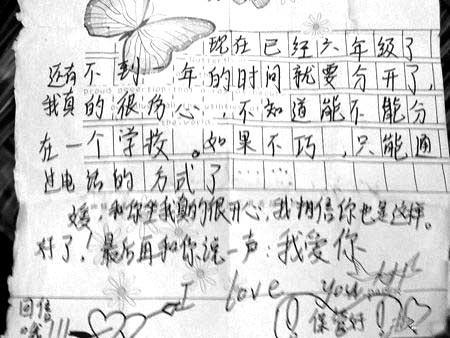 现在已经六年级了
还有不到一年的时间就要分开了,
我真的很伤心,不知道能不能分
在一个学校。如果不巧,只能通
过电话的方式了……
和你坐我真的很开心,我相信你也是这样。
好了!最后再和你说一声:我爱你
I love you!!!
回信
哦!!!
保管好